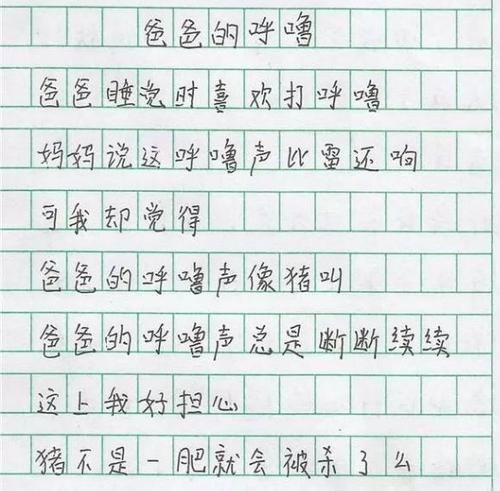 爸爸的呼噜
爸爸睡觉时喜欢打呼噜
妈妈说这呼噜声比雷还响
可我却觉得
爸爸的呼噜声像猪叫
爸爸的呼噜声总是断断续续
这上我好担心
猪不是一肥就会被杀了么